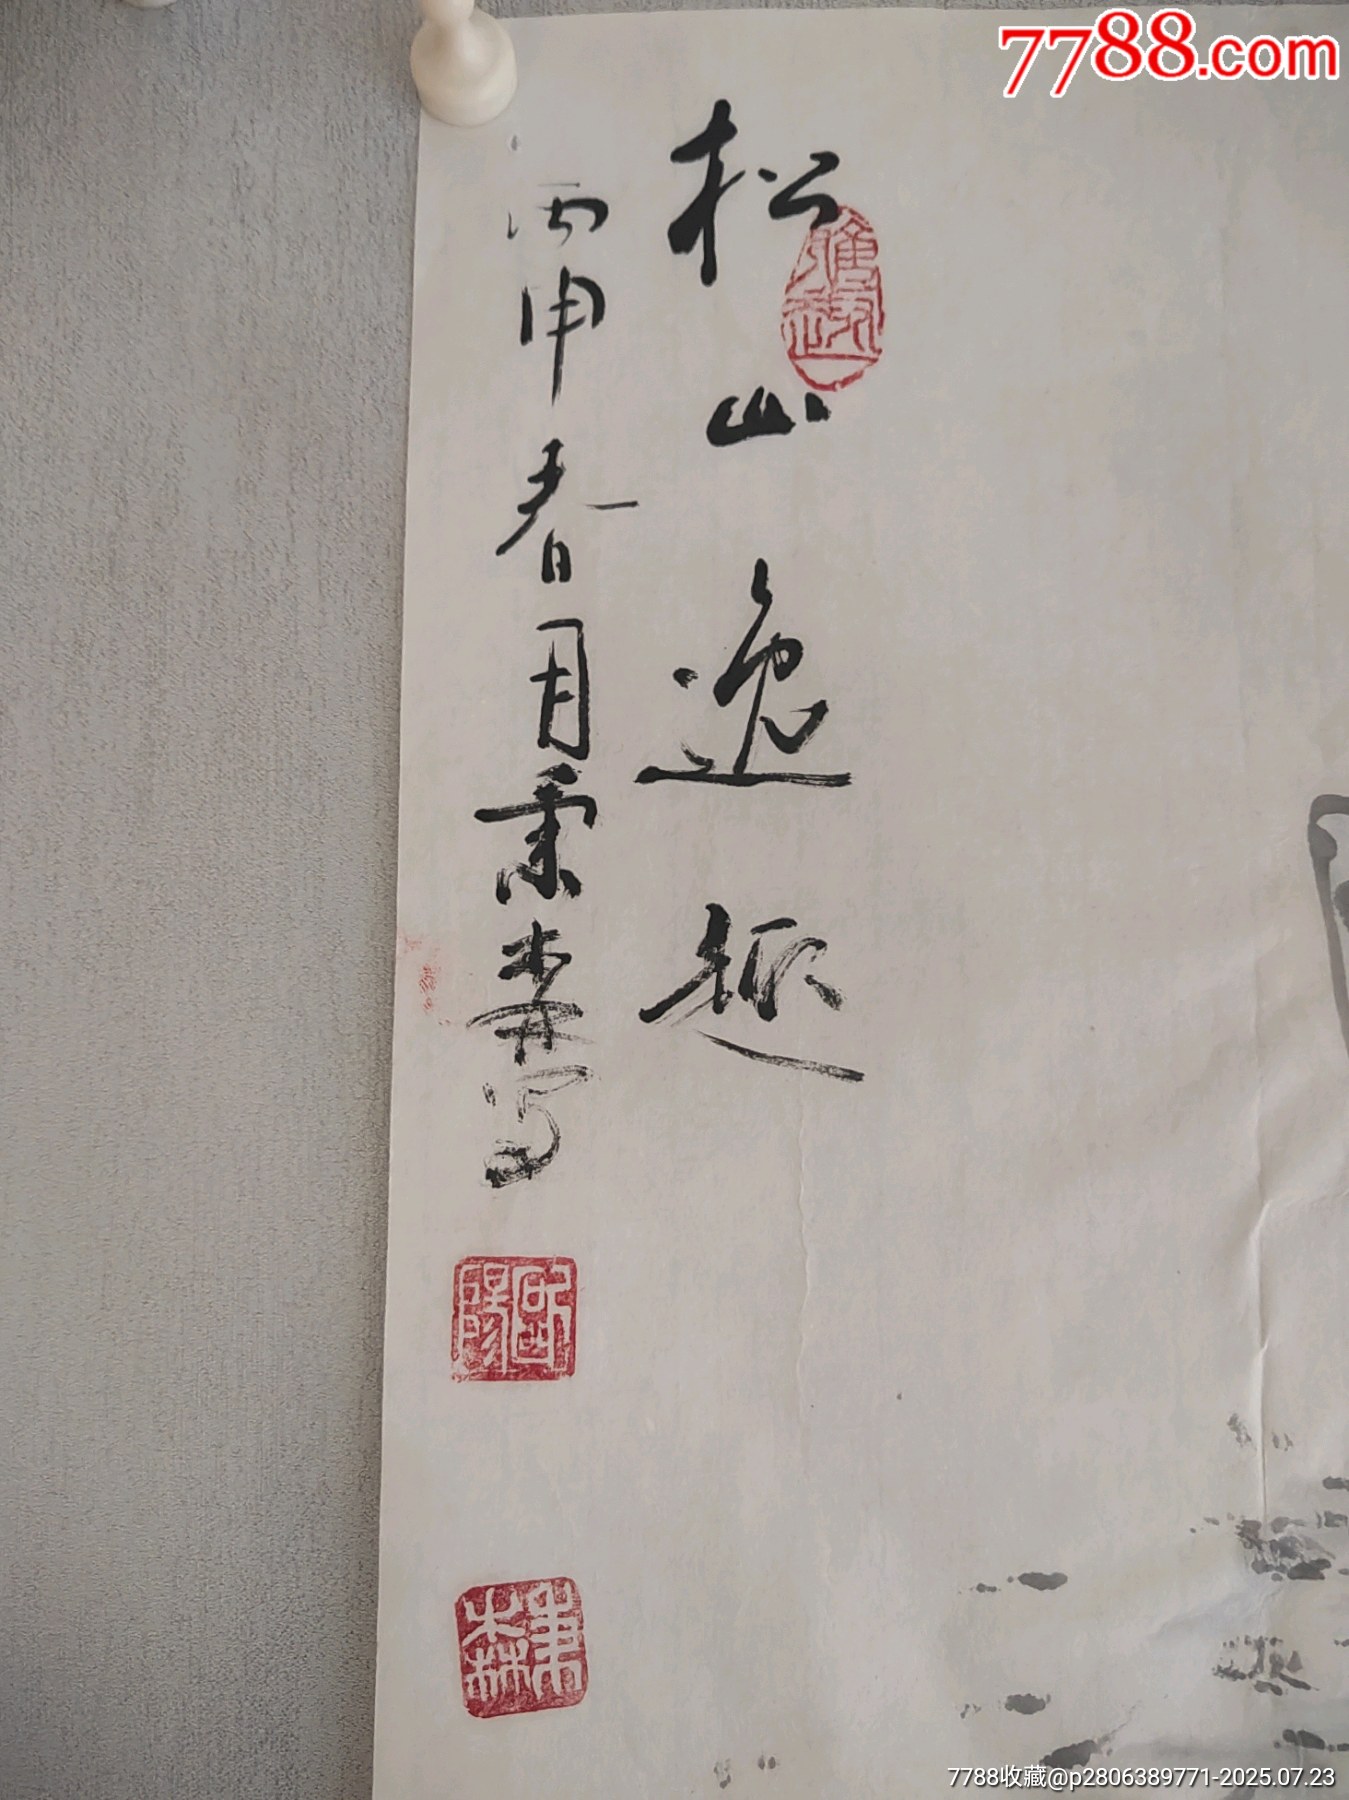 7788.com
松山逸趣
丙申春月秉森写
秉森
7788收藏@p2806389771-2025.07.23